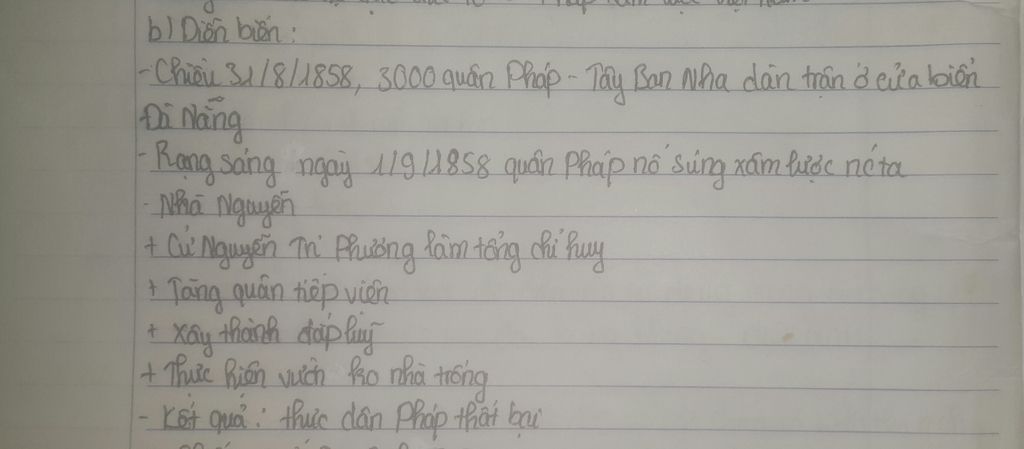 b) Diễn biến:
- Chiều 31/8/1858, 3000 quân Pháp - Tây Ban Nha dàn trận ở cửa biển
Đà Nẵng
- Rạng sáng ngày 1/9/1858 quân Pháp nổ súng xâm lược nc ta
- Nhà Nguyễn
+ Cử Nguyễn Tri Phương làm tổng chỉ huy
+ Tăng quân tiếp viện
+ Xây thành đắp luỹ
+ Thực hiện vườn ko nhà trống
- Kết quả: thực dân Pháp thất bại